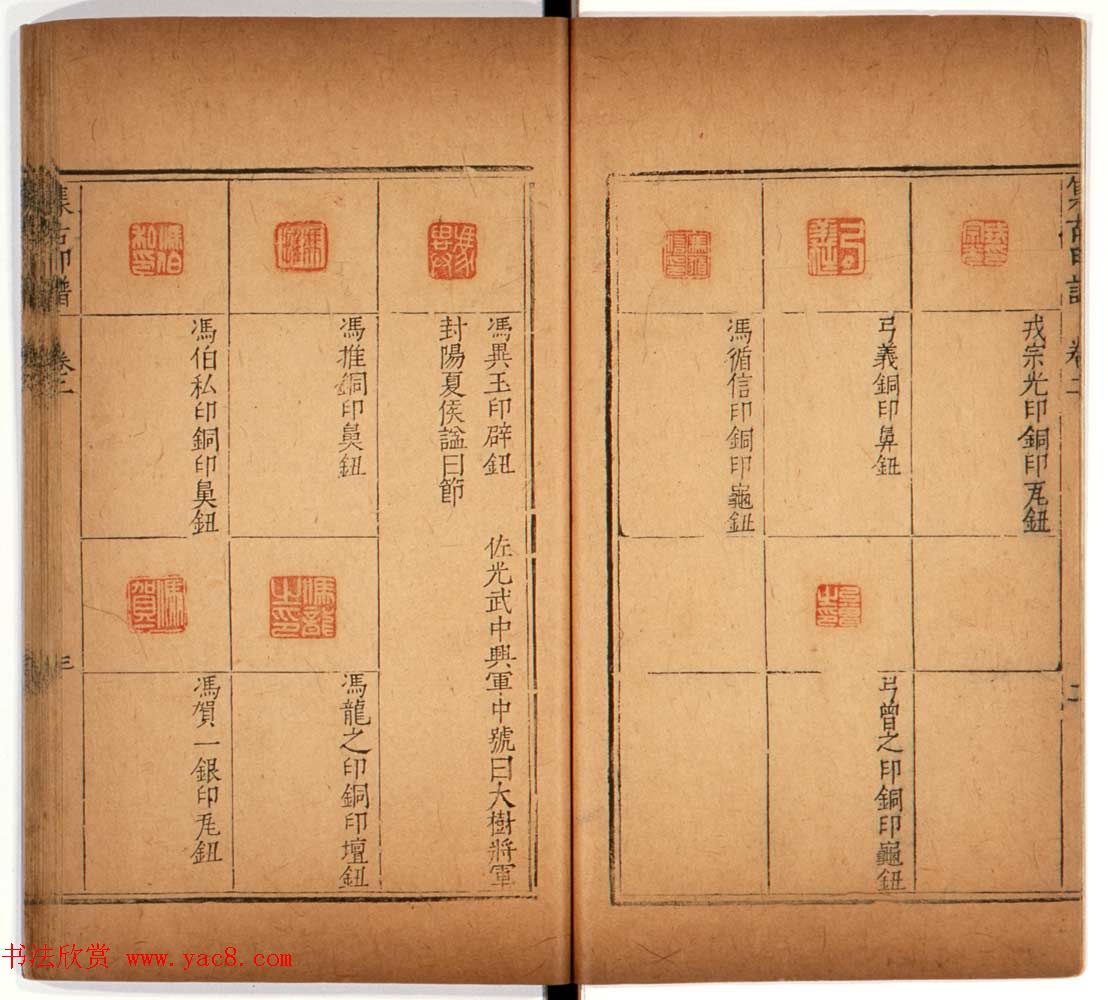 集古印譜 卷二 二
戎宗光印銅印瓦鈕
弓義銅印鼻鈕
弓曾之印銅印龜鈕
馮循信印銅印龜鈕
馮異玉印辟鈕 佐光武中興軍中號曰大樹將軍
封陽夏侯謚曰節
馮推銅印鼻鈕
馮龍之印銅印壇鈕
馮伯私印銅印鼻鈕
馮賀一銀印瓦鈕
集古印譜 卷二 三
书法欣赏 www.yac8.com